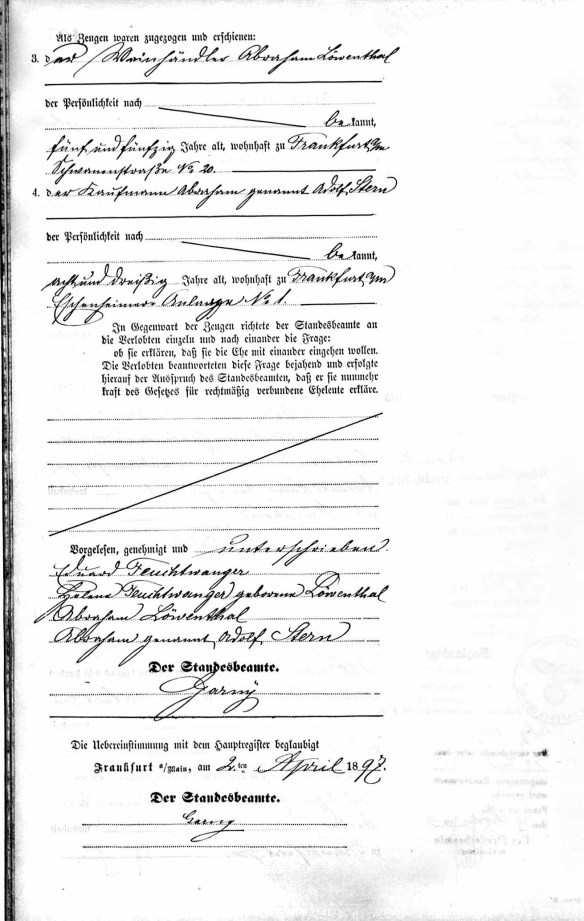 Als Zeugen waren zugezogen und erschienen:
3. der Weinhändler Abraham Löwenthal
der Persönlichkeit nach
bekannt,
fünf und fünfzig Jahre alt, wohnhaft zu Frankfurt a/M
Schwanenstraße No 20.
4. der Kaufmann Abraham genannt Adolf Stern
der Persönlichkeit nach
bekannt,
acht und dreißig Jahre alt, wohnhaft zu Frankfurt a/M
Eschenheimer Anlage No 1.
In Gegenwart der Zeugen richtete der Standesbeamte an
die Verlobten einzeln und nach einander die Frage:
ob sie erklären, daß sie die Ehe mit einander eingehen wollen.
Die Verlobten beantworteten diese Frage bejahend und erfolgte
hierauf der Ausspruch des Standesbeamten, daß er sie nunmehr
kraft des Gesetzes für rechtmäßig verbundene Eheleute erkläre.
Vorgelesen, genehmigt und unterschrieben.
Eduard Feuchtwanger
Helene Feuchtwanger geborene Löwenthal
Abraham Löwenthal
Abraham genannt Adolf Stern
Der Standesbeamte.
Die Uebereinstimmung mit dem Hauptregister beglaubigt
Frankfurt a/Main, am 2. ten April 1897.
Der Standesbeamte.